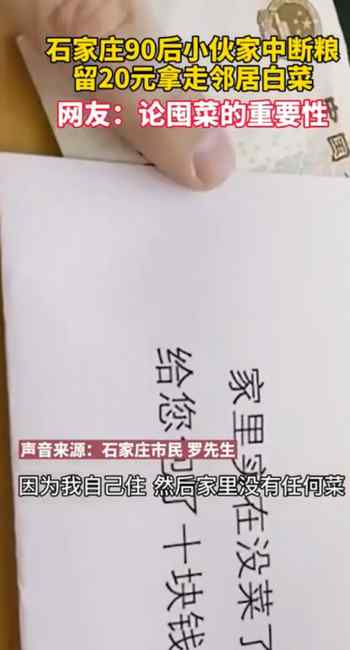 石家庄90后小伙家中断粮
留20元拿走邻居白菜
网友：论囤菜的重要性
中国
家里实在没菜了
给您 了十块钱
声音来源：石家庄市民 罗先生
因为我自己住 然后家里没有任何菜